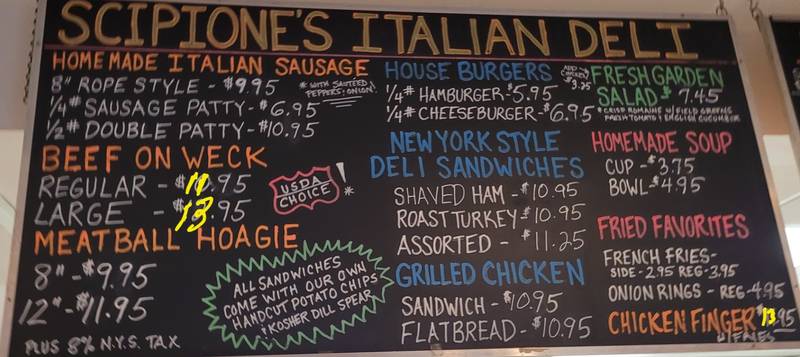 SCIPIONE'S ITALIAN DELI
HOMEMADE ITALIAN SAUSAGE
8" ROPE STYLE - $9.95
* WITH SAUTÉED
PEPPERS & ONION!
1/4# SAUSAGE PATTY - $6.95
1/2# DOUBLE PATTY - $10.95
BEEF ON WECK
REGULAR - $11.95
LARGE - $13.95
USDA
CHOICE
! *
MEATBALL HOAGIE
8" - $9.95
12" - $11.95
PLUS 8% N.Y.S. TAX
ALL SANDWICHES
COME WITH OUR OWN
HANDCUT POTATO CHIPS
& KOSHER DILL SPEAR
HOUSE BURGERS
1/4# HAMBURGER - $5.95
1/4# CHEESEBURGER - $6.95
NEW YORK STYLE
DELI SANDWICHES
SHAVED HAM - $10.95
ROAST TURKEY $10.95
ASSORTED - $11.25
GRILLED CHICKEN
SANDWICH - $10.95
FLATBREAD - $10.95
ADD
CHICKEN
$3.25
FRESH GARDEN
SALAD $7.45
* CRISP ROMAINE W/ FIELD GREENS
FRESH TOMATO & ENGLISH CUCUMBER
HOMEMADE SOUP
CUP - $3.75
BOWL - $4.95
FRIED FAVORITES
FRENCH FRIES -
SIDE - 2.95 REG - 3.95
ONION RINGS - REG - 4.95
CHICKEN FINGER $13.95
W/ FRIES